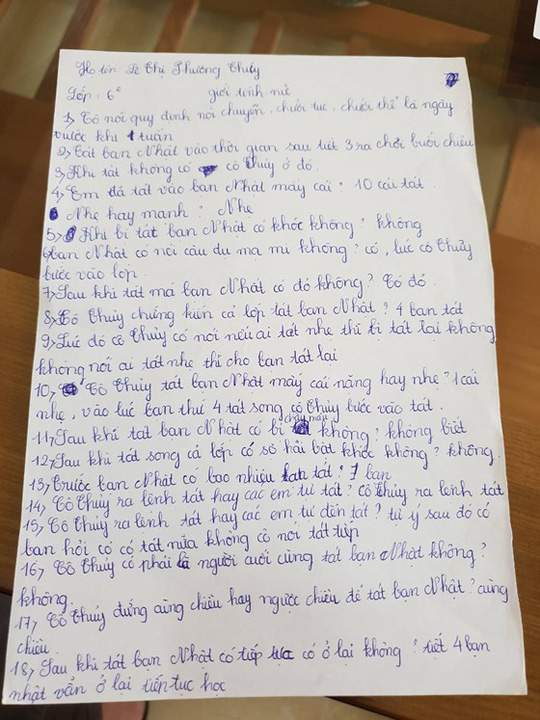 Họ tên: Lê Thị Phương Thúy
Lớp: 6² giới tính nữ
1, Cô nói quy định nói chuyện, chưởi tục, chưởi thề là ngày
trước khi 1 tuần
2, Tát bạn Nhật vào thời gian sau tiết 3 ra chơi buổi chiều
3, Khi tát không có cô Thủy ở đó.
4, Em đã tát vào bạn Nhật mấy cái? 10 cái tát.
Nhẹ hay mạnh? Nhẹ
5, Khi bị tát bạn Nhật có khóc không? không
6, bạn Nhật có nói câu du ma mi không? có, lúc cô Thủy
bước vào lớp.
7, Sau khi tát má bạn Nhật có đỏ không? Có đỏ.
8, Cô Thủy chứng kiến cả lớp tát bạn Nhật? 4 bạn tát
9, Lúc đó cô Thủy có nói nếu ai tát nhẹ thì bị tát lại không
không nói ai tát nhẹ thì cho bạn tát lại
10, Cô Thủy tát bạn Nhật mấy cái nặng hay nhẹ? 1 cái
nhẹ, vào lúc bạn thứ 4 tát song cô Thủy bước vào tát.
11, Sau khi tát bạn Nhật có bị chảy máu không? không biết
12, Sau khi tát song cả lớp có sợ hãi bật khóc không? không.
13, Trước bạn Nhật có bao nhiêu bạn tát? 7 bạn
14, Cô Thủy ra lệnh tát hay các em tự tát? Cô Thủy ra lệnh tát
15, Cô Thủy ra lệnh tát hay các em tự đến tát? tự ý sau đó có
bạn hỏi cô có tát nữa không cô nói tát tiếp
16, Cô Thủy có phải là người cuối cùng tát bạn Nhật không?
không.
17, Cô Thủy đứng cùng chiều hay ngược chiều để tát bạn Nhật? cùng
chiều.
18, Sau khi tát bạn Nhật có tiếp tục có ở lại không? tiết 4 bạn
nhật vẫn ở lại tiếp tục học